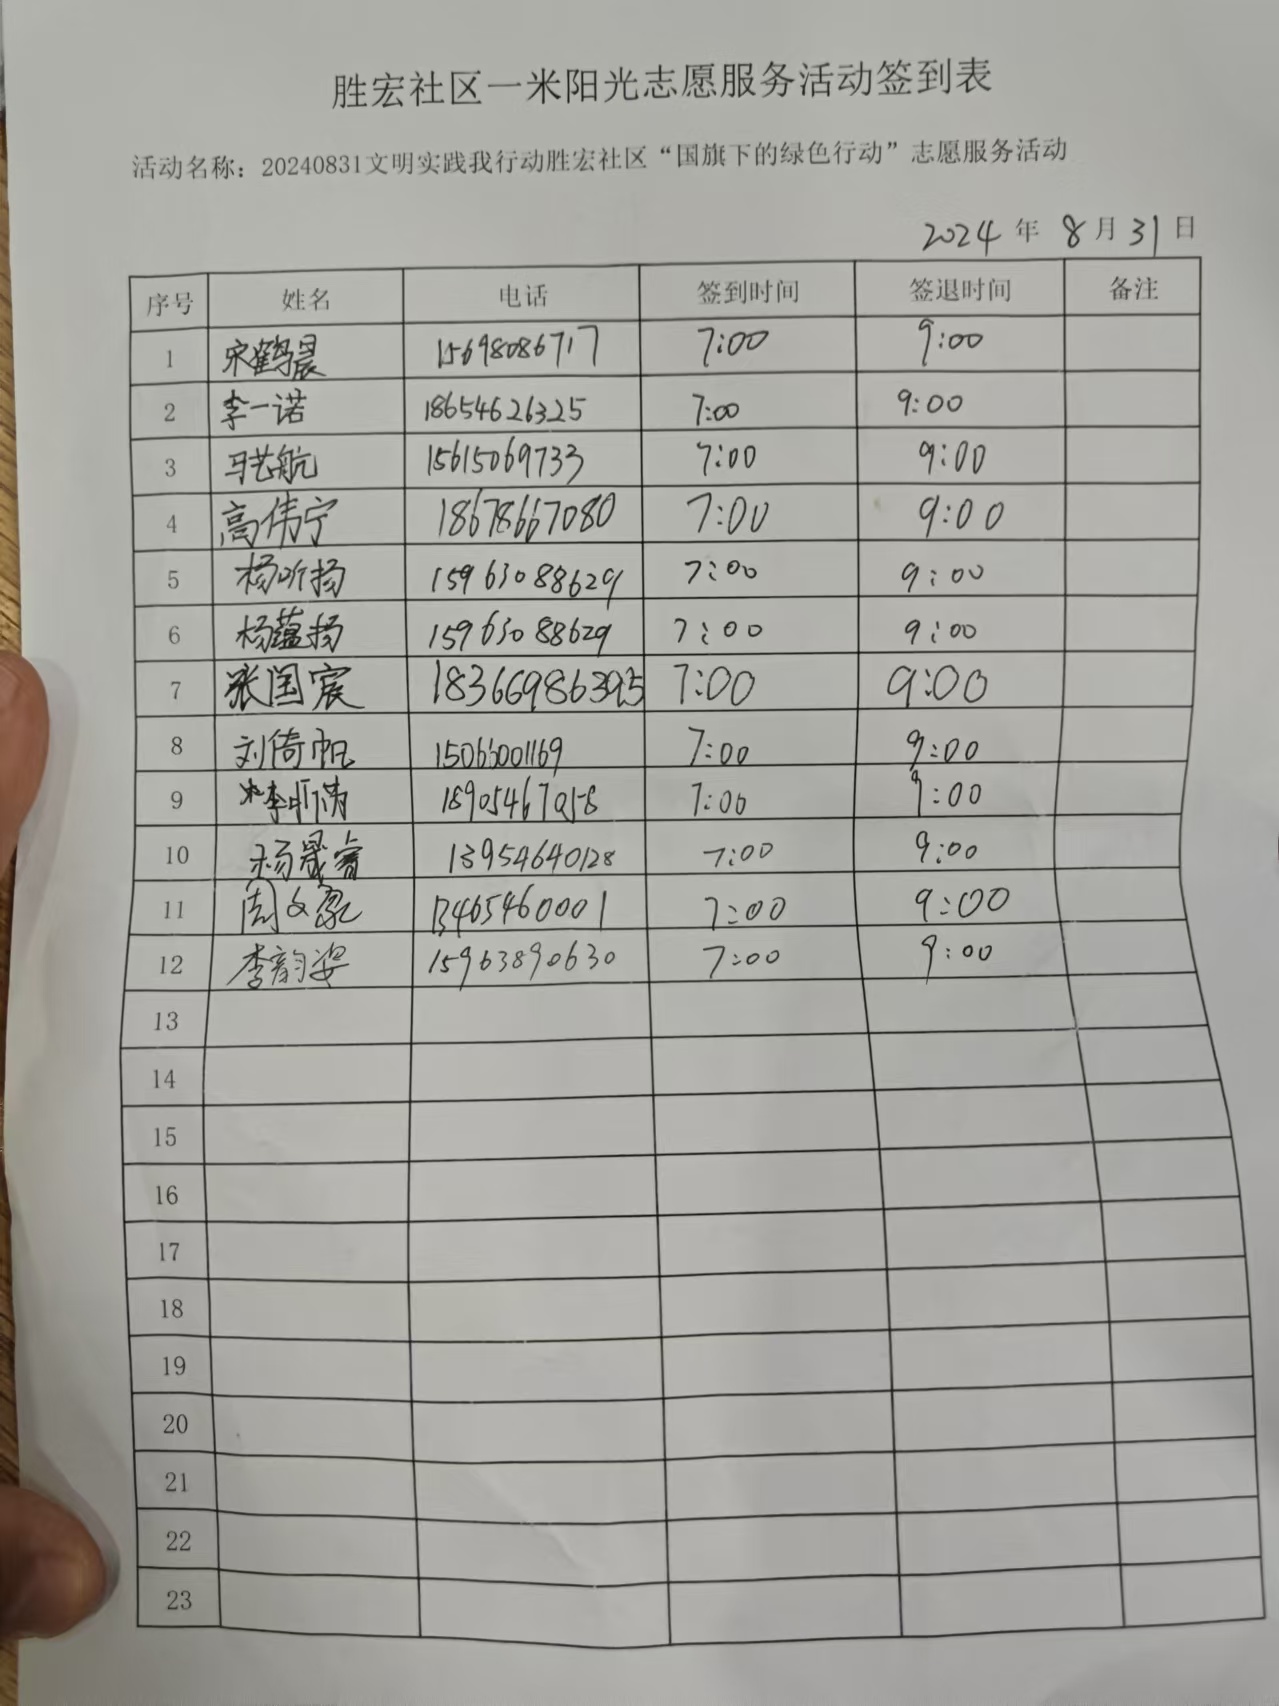 胜宏社区一米阳光志愿服务活动签到表
活动名称：20240831文明实践我行动胜宏社区“国旗下的绿色行动”志愿服务活动
2024 年 8 月 31 日
序号 姓名 电话 签到时间 签退时间 备注
1 宋鹤晨 15698086717 7:00 9:00
2 李一诺 18654626325 7:00 9:00
3 马艺航 15615069733 7:00 9:00
4 高伟宁 18678667080 7:00 9:00
5 杨昕扬 15963088629 7:00 9:00
6 杨蕴扬 15963088629 7:00 9:00
7 张国宸 18366986395 7:00 9:00
8 刘倚帆 15066001169 7:00 9:00
9 7:00 9:00
10 杨晟睿 13954640128 7:00 9:00
11 周文豪 13465460001 7:00 9:00
12 李韵姿 15963890630 7:00 9:00
13
14
15
16
17
18
19
20
21
22
23